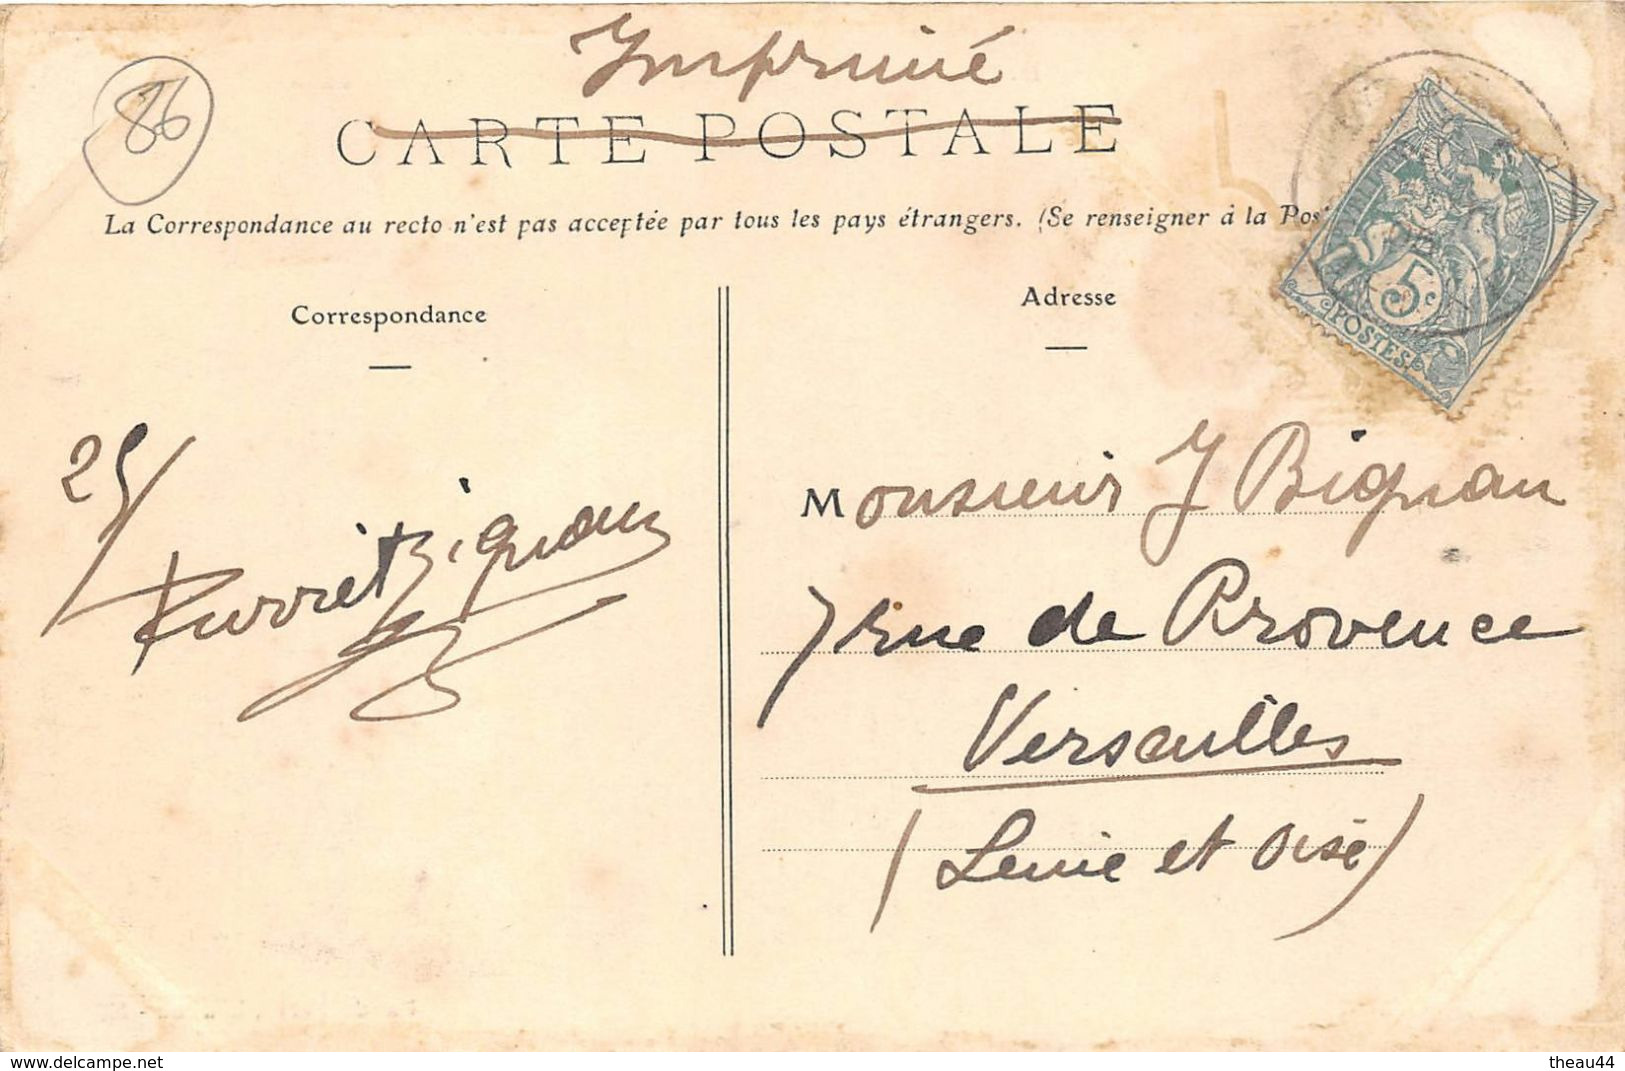 Imprimé
86
CARTE POSTALE
La Correspondance au recto n'est pas acceptée par tous les pays étrangers. (Se renseigner à la Pos
5c
POSTES
Correspondance
Adresse
25/
Monsieur J Bignan
7 rue de Provence
Versailles
(Seine et Oise)
delcampe.net
theau44